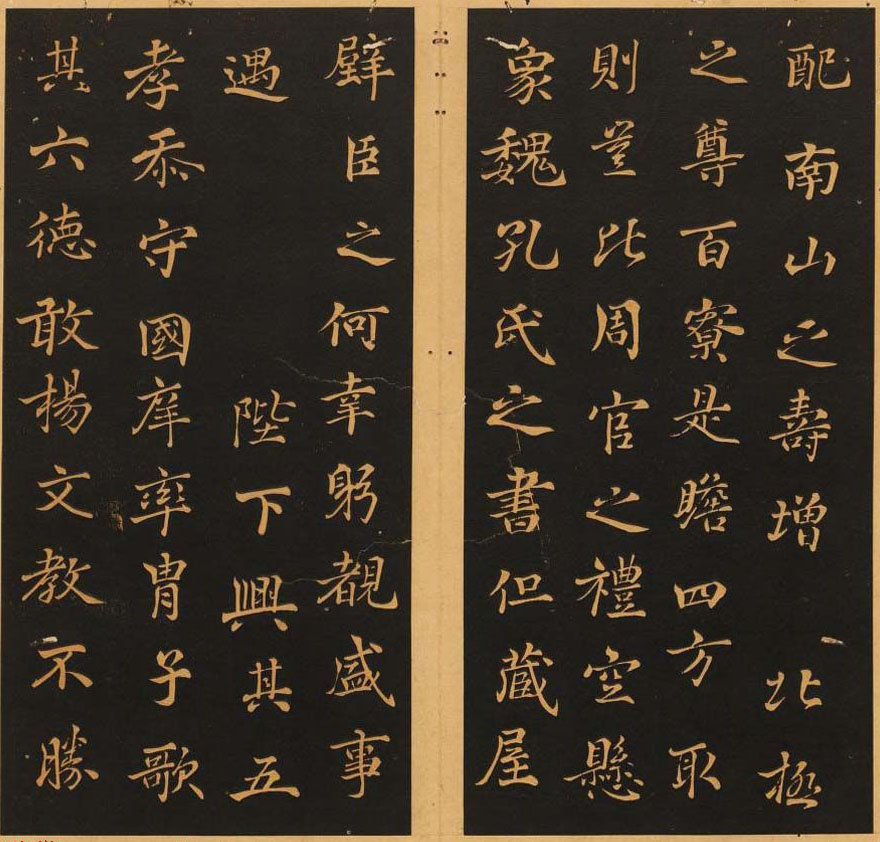 配南山之壽增 北極
之尊百寮是瞻四方取
則豈比周官之禮空懸
象魏孔氏之書但藏屋
壁臣之何幸躬覩盛事
遇 陛下興其五
孝忝守國庠率胄子歌
其六德敢楊文教不勝